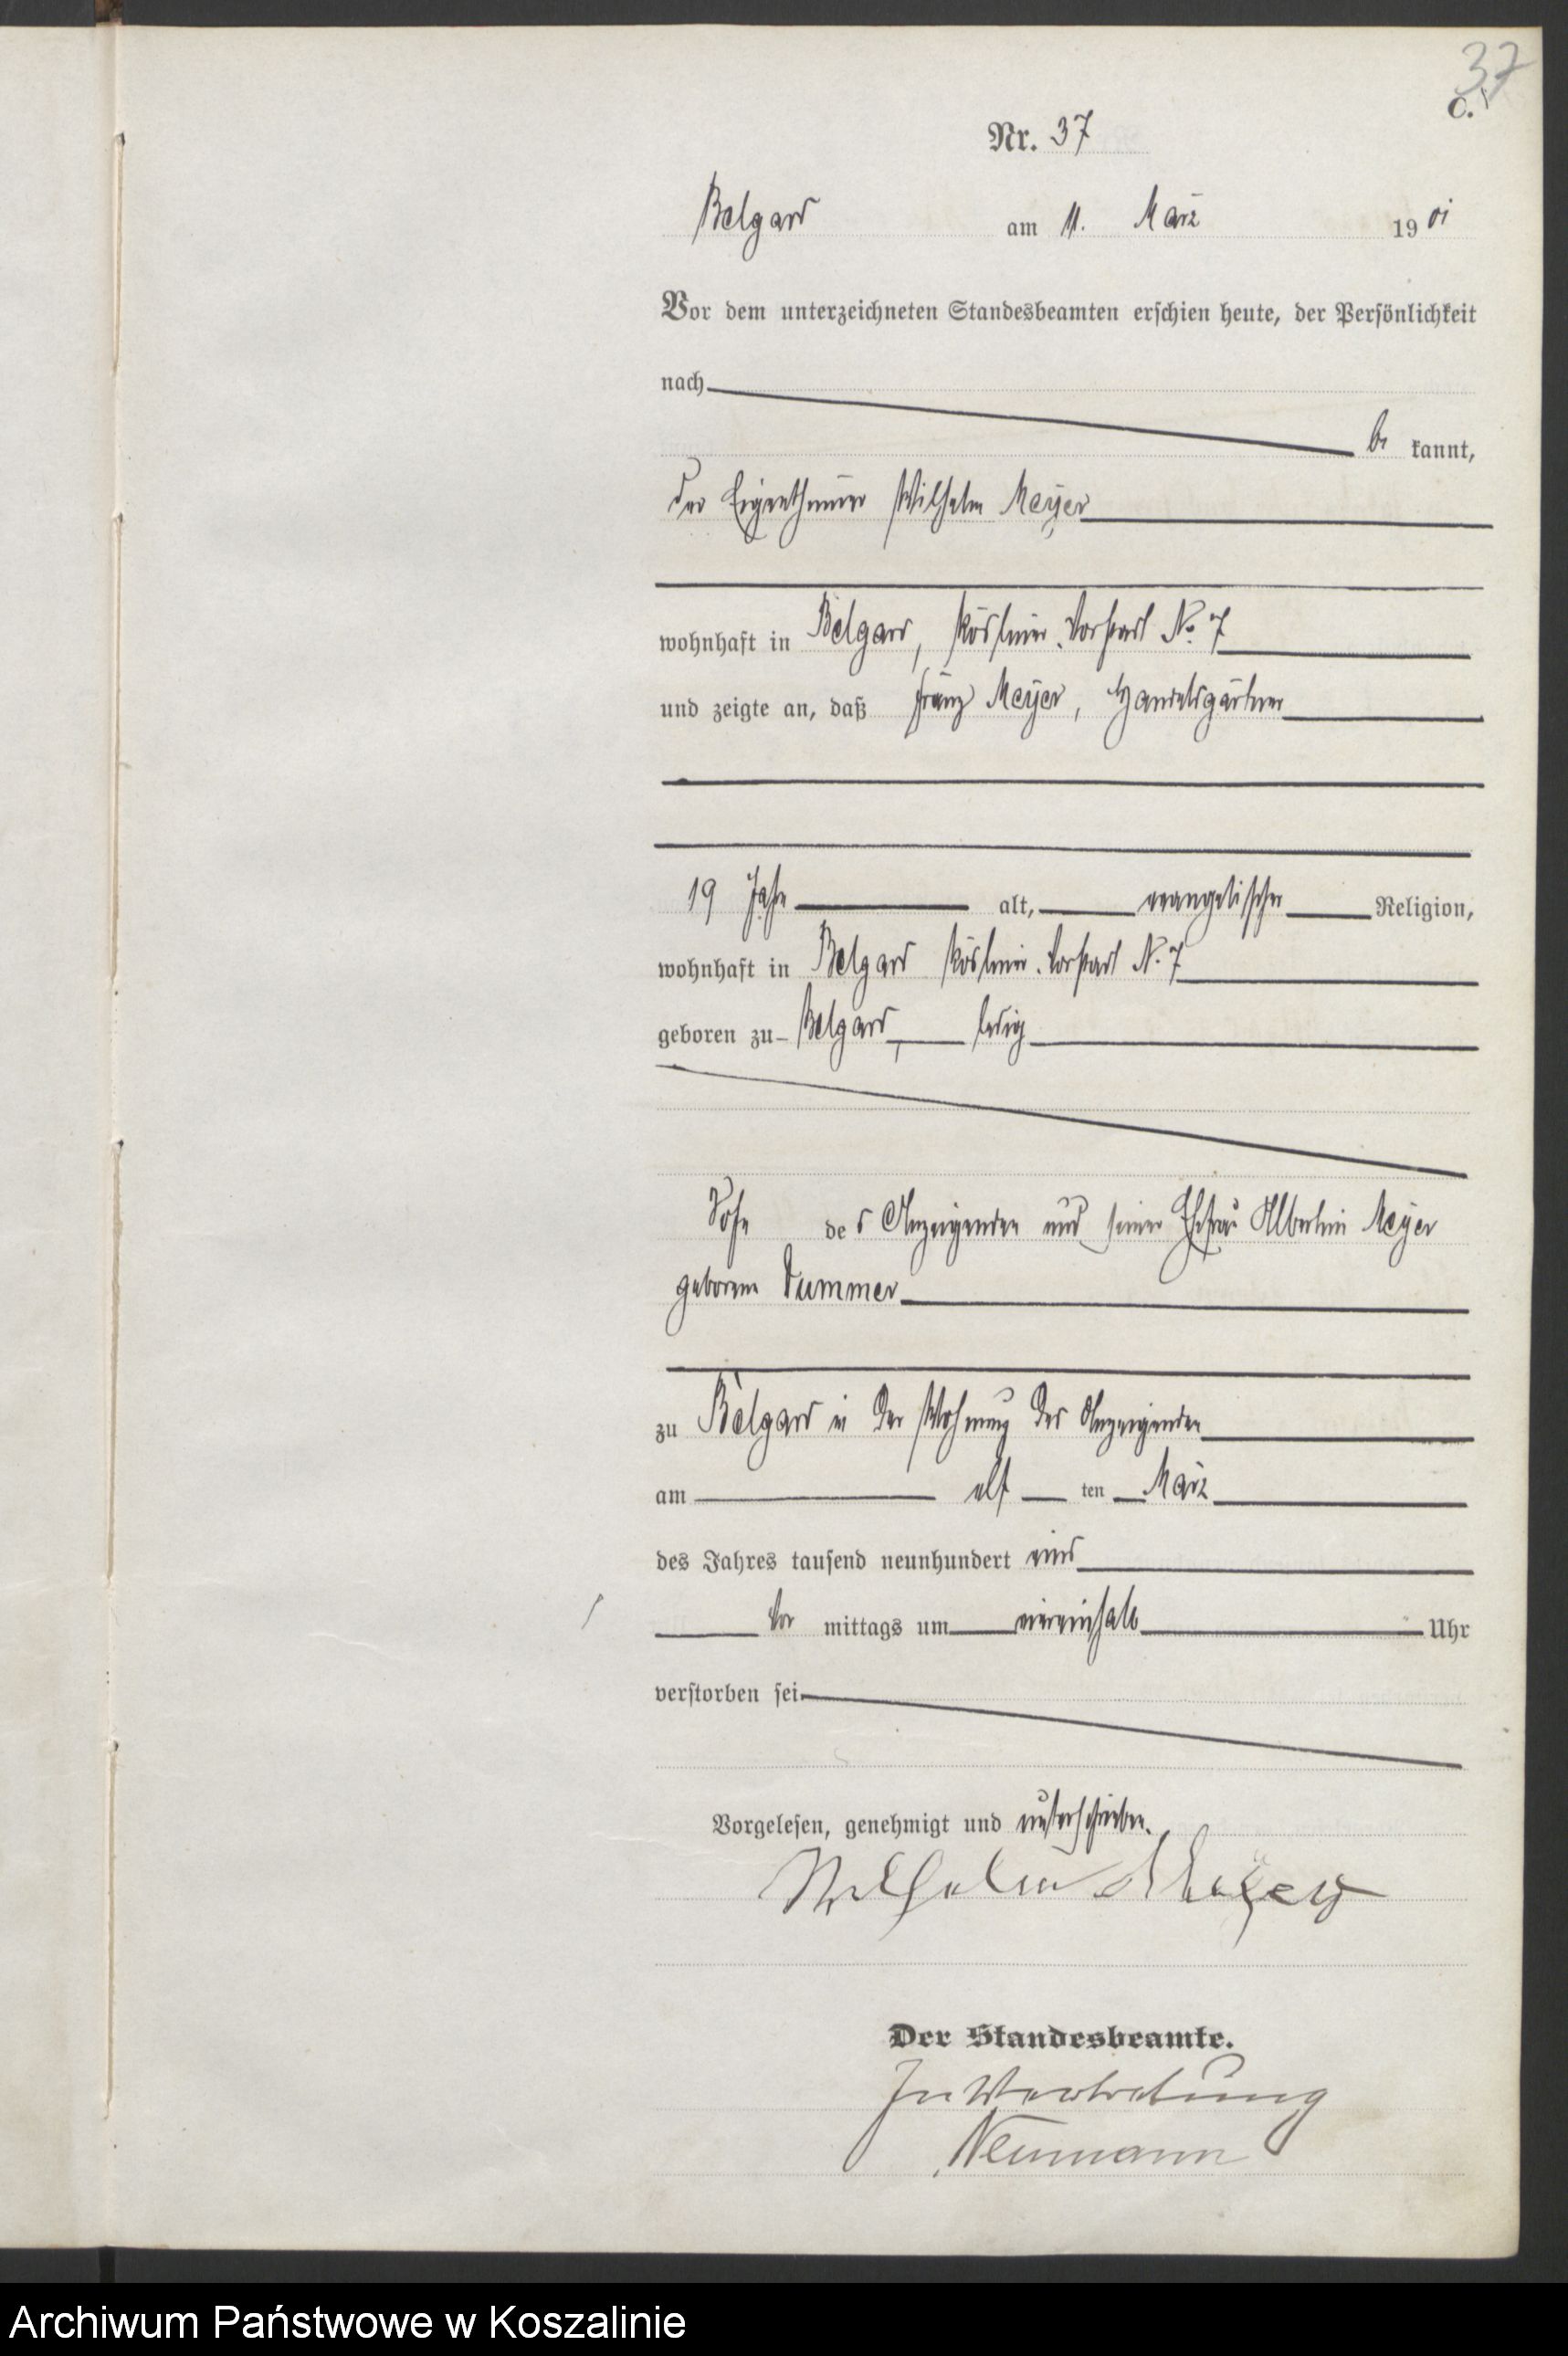 37
C.
Nr. 37
Belgard am 11. März 1901
Vor dem unterzeichneten Standesbeamten erschien heute, der Persönlichkeit
nach
be kannt,
der Eigenthümer Wilhelm Meyer
wohnhaft in Belgard, Kösliner Vorstadt No. 7
und zeigte an, daß Franz Meyer, Handelsgärtner
19 Jahr alt, evangelischer Religion,
wohnhaft in Belgard Kösliner Vorstadt N. 7
geboren zu Belgard, ledig
Sohn des Anzeigenden und seiner Ehefrau Albertine Meyer
geborene Dummer
zu Belgard in der Wohnung des Anzeigenden
am elf ten März
des Jahres tausend neunhundert eins
Vor mittags um viereinhalb Uhr
verstorben sei
Vorgelesen, genehmigt und unterschrieben.
Wilhelm Meyer
Der Standesbeamte.
In Vertretung
Neumann
Archiwum Państwowe w Koszalinie